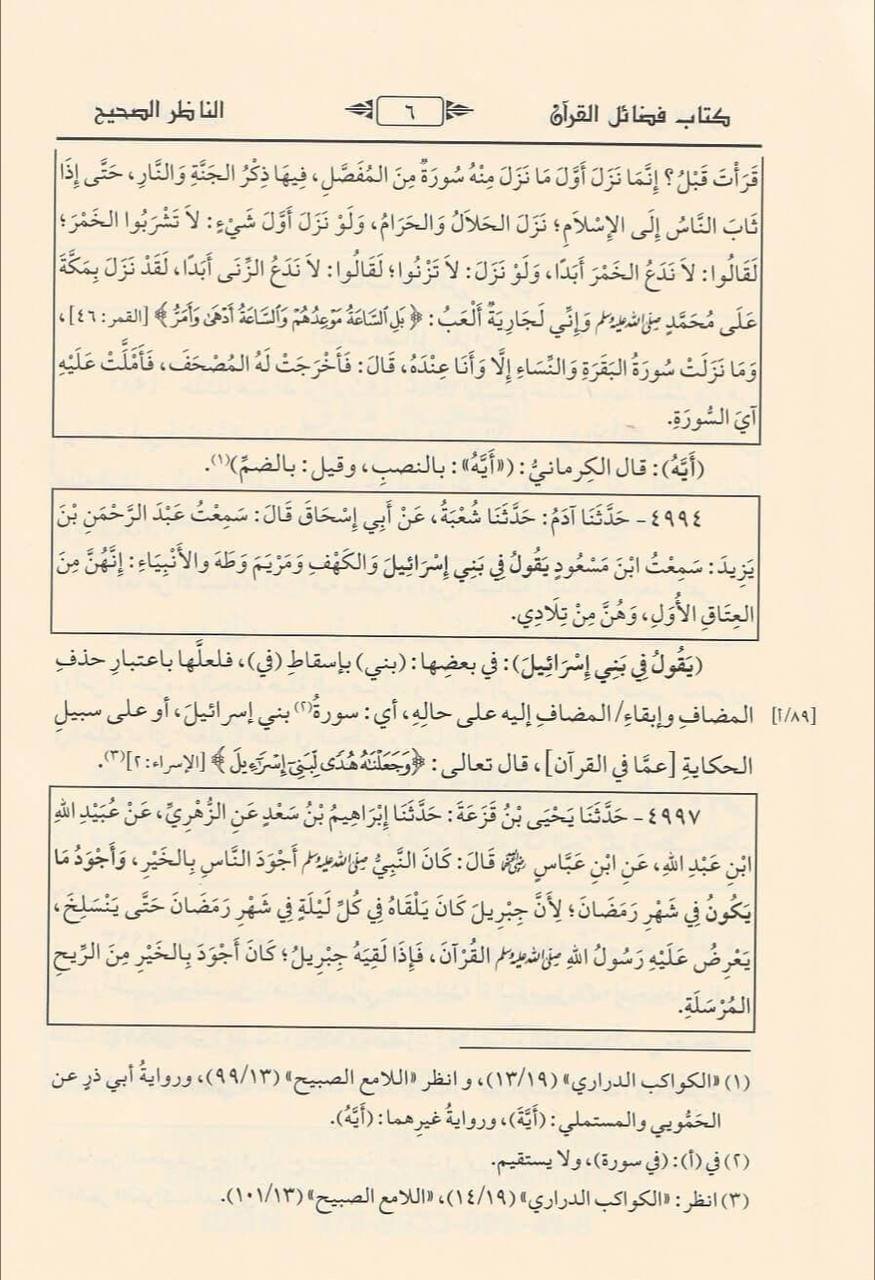 كتاب فضائل القرآن ٦ الناظر الصحيح
قَرَأْتَ قَبْلُ؟ إِنَّمَا نَزَلَ أَوَّلَ مَا نَزَلَ مِنْهُ سُورَةٌ مِنَ المُفَصَّلِ، فِيهَا ذِكْرُ الجَنَّةِ وَالنَّارِ، حَتَّى إِذَا
ثَابَ النَّاسُ إِلَى الإِسْلَامِ؛ نَزَلَ الحَلَالُ وَالحَرَامُ، وَلَوْ نَزَلَ أَوَّلَ شَيْءٍ: لَا تَشْرَبُوا الخَمْرَ؛
لَقَالُوا: لَا نَدَعُ الخَمْرَ أَبَدًا، وَلَوْ نَزَلَ: لَا تَزْنُوا؛ لَقَالُوا: لَا نَدَعُ الزِّنَى أَبَدًا، لَقَدْ نَزَلَ بِمَكَّةَ
عَلَى مُحَمَّدٍ صلى الله عليه وسلم وَإِنِّي لَجَارِيَةٌ أَلْعَبُ: ﴿بَلِ السَّاعَةُ مَوْعِدُهُمْ وَالسَّاعَةُ أَدْهَىٰ وَأَمَرُّ﴾ [القمر: ٤٦]،
وَمَا نَزَلَتْ سُورَةُ البَقَرَةِ وَالنِّسَاءِ إِلَّا وَأَنَا عِنْدَهُ، قَالَ: فَأَخْرَجَتْ لَهُ المُصْحَفَ، فَأَمْلَّتْ عَلَيْهِ
آيَ السُّورَةِ.
(أَيَّهُ): قال الكِرمانيُّ: («أَيَّهُ»: بالنصبِ، وقيل: بالضمِّ)(١).
٤٩٩٤- حَدَّثَنَا آدَمُ: حَدَّثَنَا شُعْبَةُ، عَنْ أَبِي إِسْحَاقَ قَالَ: سَمِعْتُ عَبْدَ الرَّحْمَنِ بْنَ
يَزِيدَ: سَمِعْتُ ابْنَ مَسْعُودٍ يَقُولُ فِي بَنِي إِسْرَائِيلَ وَالكَهْفِ وَمَرْيَمَ وَطَهَ وَالأَنْبِيَاءِ: إِنَّهُنَّ مِنَ
العِتَاقِ الأُوَلِ، وَهُنَّ مِنْ تِلَادِي.
(يَقُولُ فِي بَنِي إِسْرَائِيلَ): في بعضِها: (بني) بإسقاطِ (في)، فلعلَّها باعتبارِ حذفِ
المضافِ وإبقاءِ/ المضافِ إليه على حالِهِ، أي: سورةُ(٢) بني إسرائيلَ، أو على سبيلِ [٨٩/أ]
الحكايةِ [عمَّا في القرآن]، قال تعالى: ﴿وَجَعَلْنَاهُ هُدًى لِّبَنِي إِسْرَائِيلَ﴾ [الإسراء: ٢](٣).
٤٩٩٧- حَدَّثَنَا يَحْيَى بْنُ قَزَعَةَ: حَدَّثَنَا إِبْرَاهِيمُ بْنُ سَعْدٍ عَنِ الزُّهْرِيِّ، عَنْ عُبَيْدِ اللهِ
ابْنِ عَبْدِ اللهِ، عَنِ ابْنِ عَبَّاسٍ رضي الله عنهما قَالَ: كَانَ النَّبِيُّ صلى الله عليه وسلم أَجْوَدَ النَّاسِ بِالخَيْرِ، وَأَجْوَدُ مَا
يَكُونُ فِي شَهْرِ رَمَضَانَ؛ لِأَنَّ جِبْرِيلَ كَانَ يَلْقَاهُ فِي كُلِّ لَيْلَةٍ فِي شَهْرِ رَمَضَانَ حَتَّى يَنْسَلِخَ،
يَعْرِضُ عَلَيْهِ رَسُولُ اللهِ صلى الله عليه وسلم القُرْآنَ، فَإِذَا لَقِيَهُ جِبْرِيلُ؛ كَانَ أَجْوَدَ بِالخَيْرِ مِنَ الرِّيحِ
المُرْسَلَةِ.
(١) «الكواكب الدراري» (١٣/١٩)، و انظر «اللامع الصبيح» (٩٩/١٣)، وروايةُ أبي ذرٍ عن
الحَمُّويي والمستملي: (أَيَّةَ)، وروايةُ غيرِهما: (أَيَّهُ).
(٢) في (أ): (في سورة)، ولا يستقيم.
(٣) انظر: «الكواكب الدراري» (١٤/١٩)، «اللامع الصبيح» (١٠١/١٣).